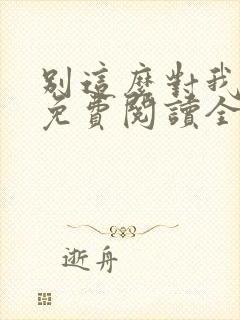 別這麼對我
免費閱讀全
逝舟